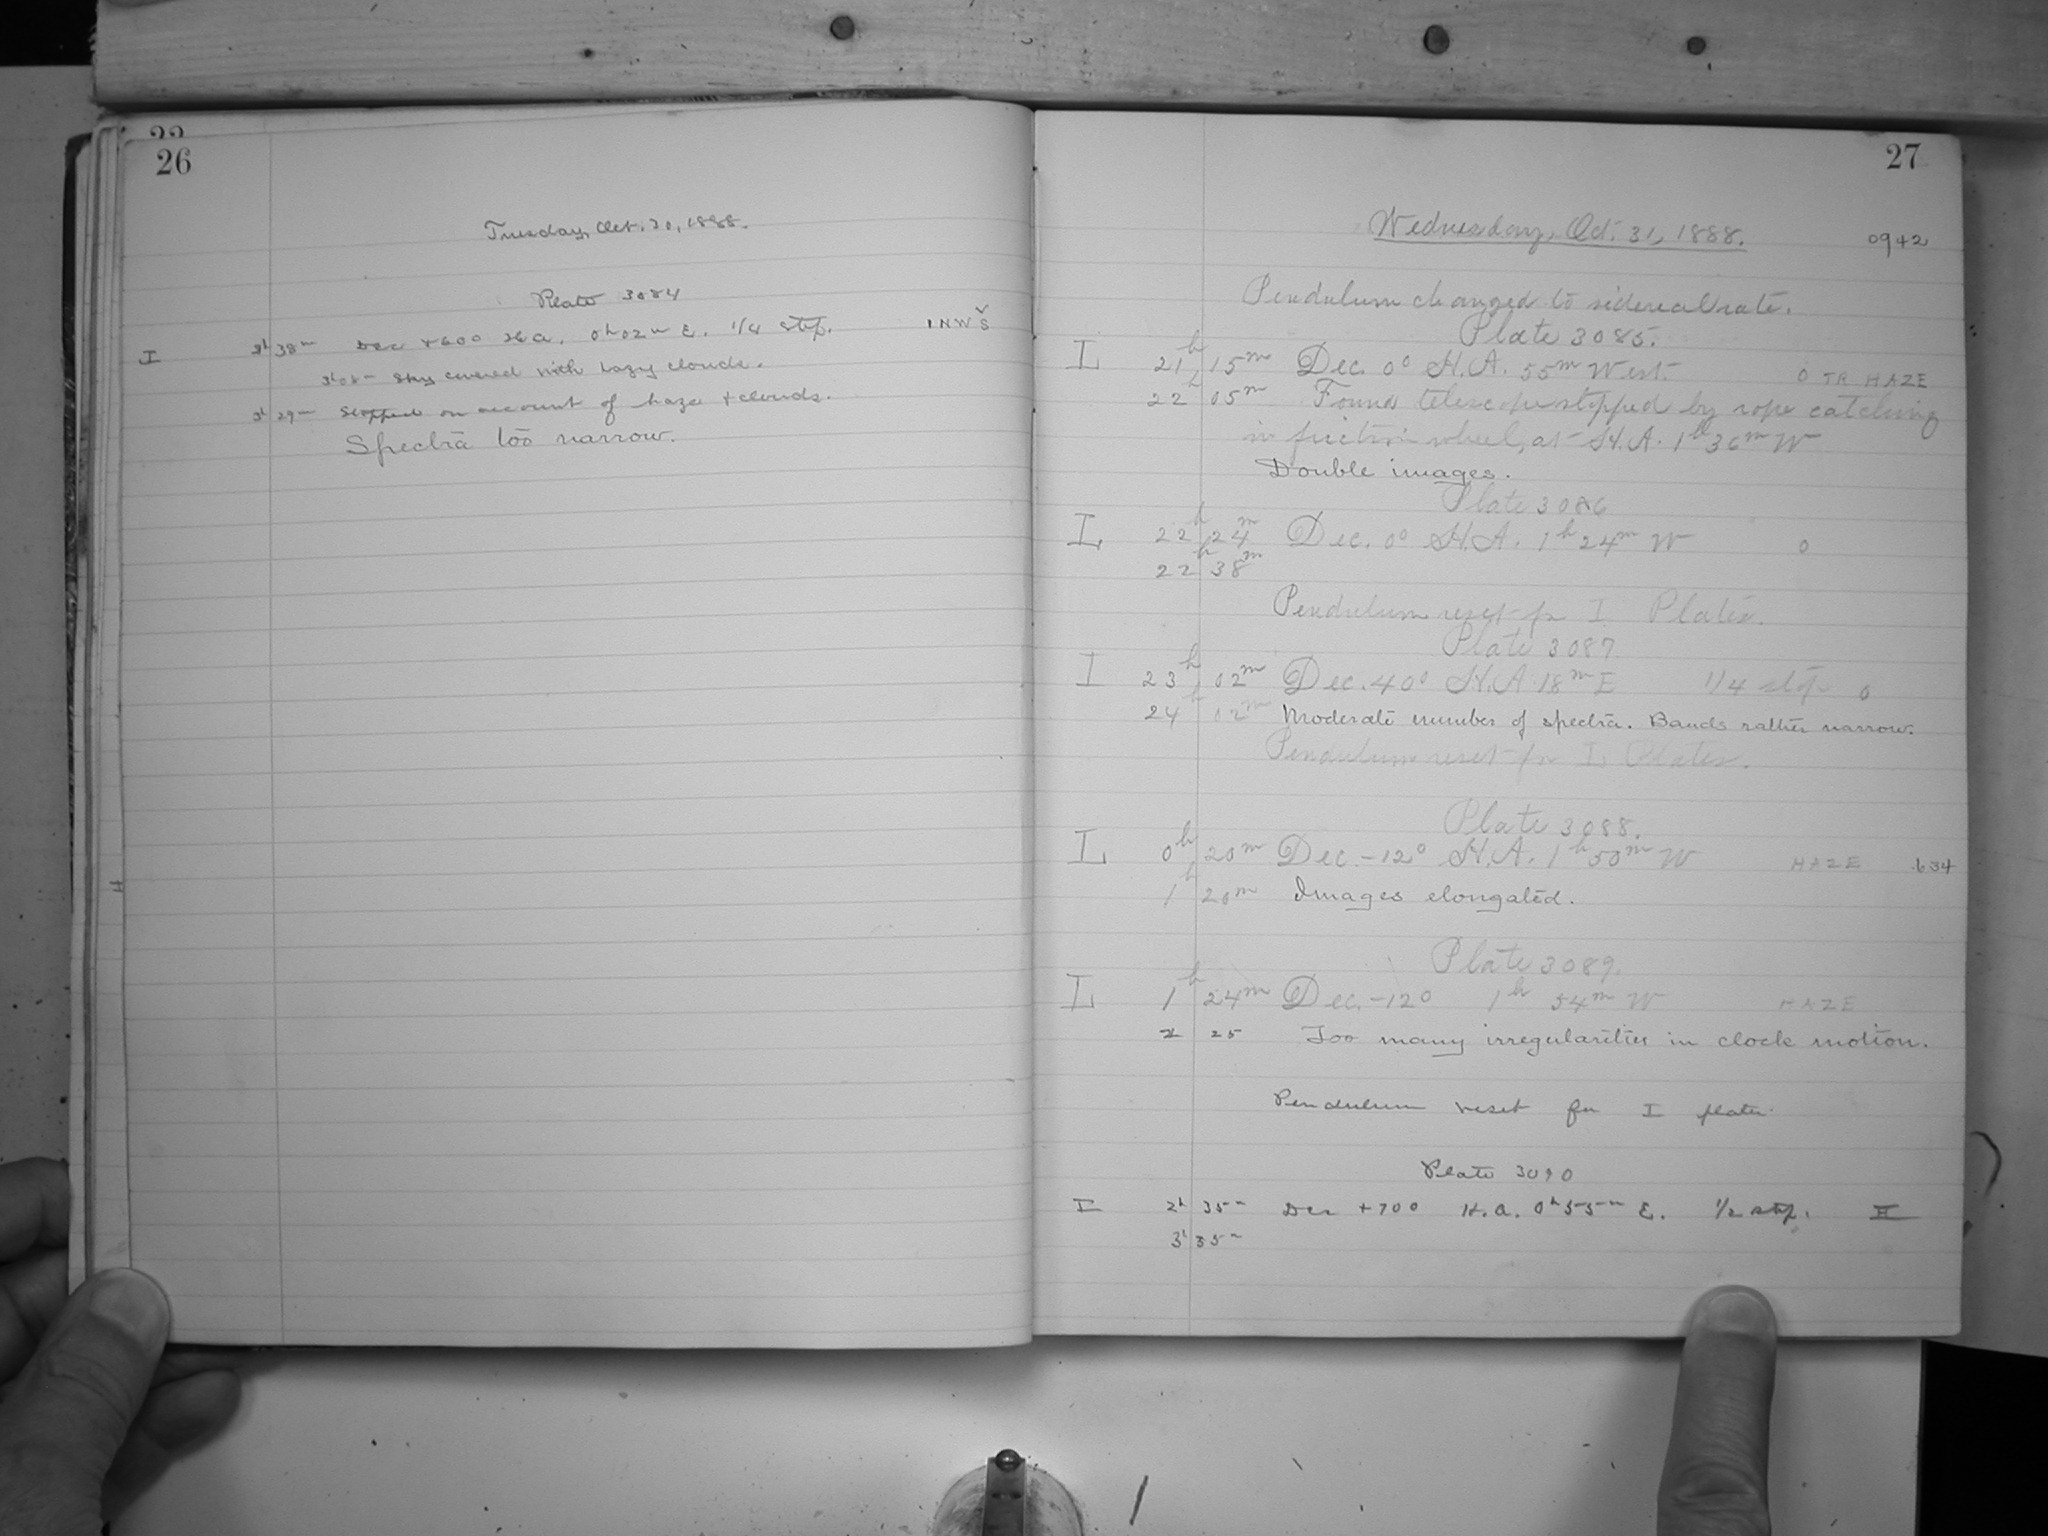 26
Tuesday, Oct. 30, 1888.
Plate 3084
I 38m Dec +60° H.A. 0h 02m E. 1/4 step. 1 NW S
3h 08m Sky covered with hazy clouds.
3h 29m Stopped on account of haze + clouds.
Spectra too narrow.
27
Wednesday, Oct. 31, 1888. 0942
Pendulum changed to sidereal rate.
Plate 3085.
I 21h 15m Dec. 0° H.A. 55m West. 0 TR HAZE
22h 05m Found telescope stopped by rope catching
in friction wheel, at H.A. 1h 36m W
Double images.
Plate 3086
I 22h 24m Dec. 0° H.A. 1h 24m W 0
22h 38m
Pendulum reset for I Plates.
Plate 3087
I 23h 02m Dec. 40° H.A. 18m E 1/4 step 0
24h 02m Moderate number of spectra. Bands rather narrow.
Pendulum reset for I, Plates.
Plate 3088.
I, 0h 20m Dec. -12° H.A. 1h 50m W HAZE 634
1h 20m Images elongated.
Plate 3089.
I, 1h 24m Dec. -12° 1h 54m W HAZE
2 25 Too many irregularities in clock motion.
Pendulum reset for I plates.
Plate 3090
I 2h 35m Dec +70° H.A. 0h 55m E. 1/2 step. II
3h 35m